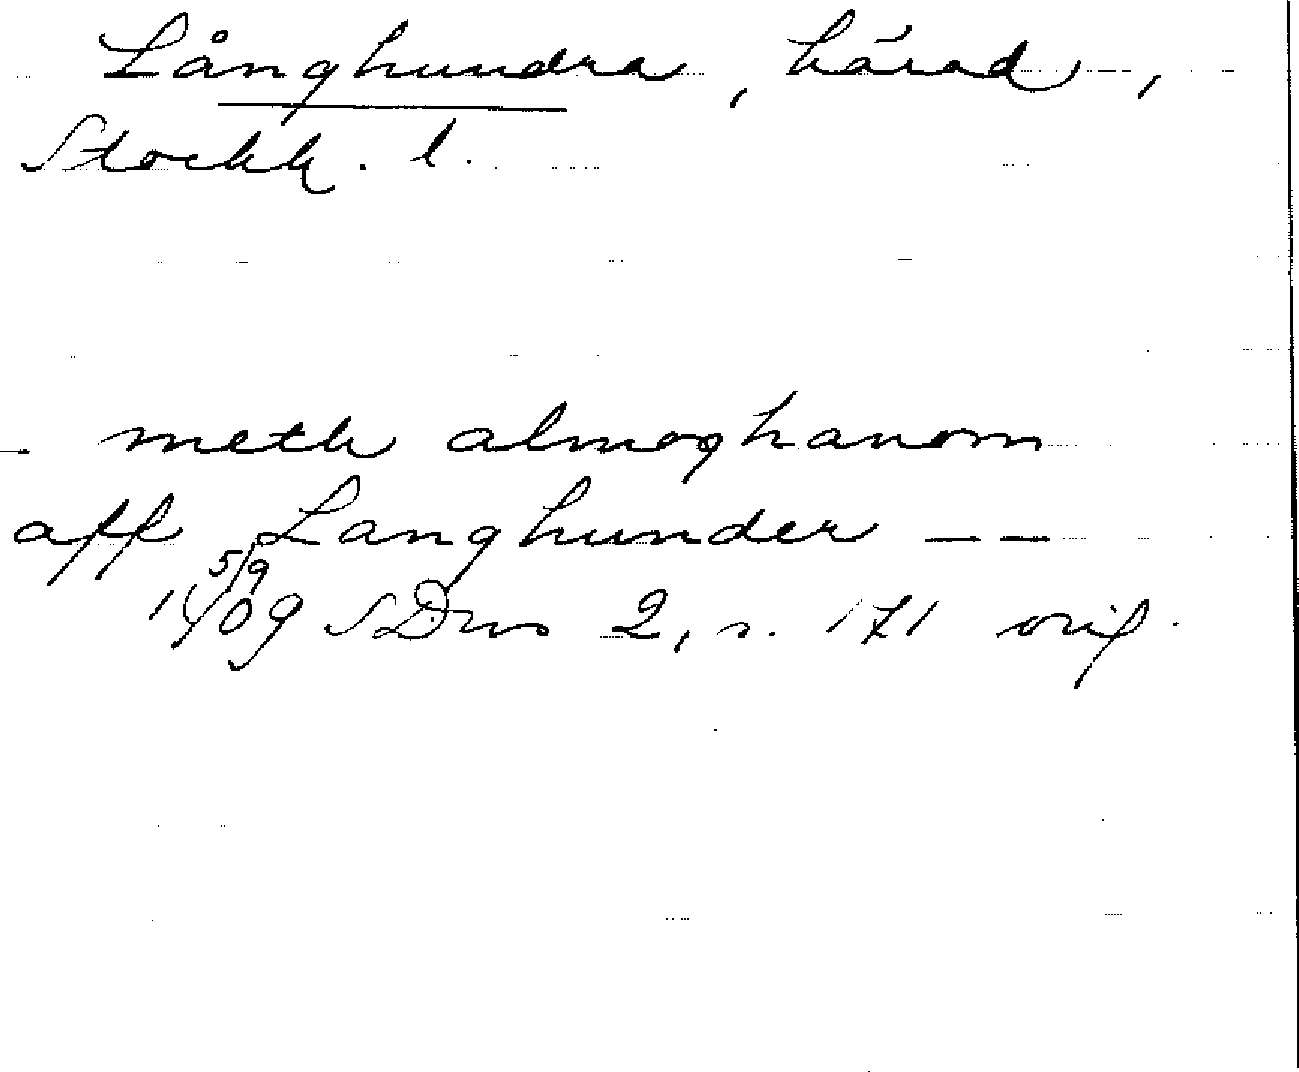 Långhundra, härad,
Stockh. l.
- meth almoghanom
aff Langhunder --
5/9
1409 SDns 2, s. 171 orig.